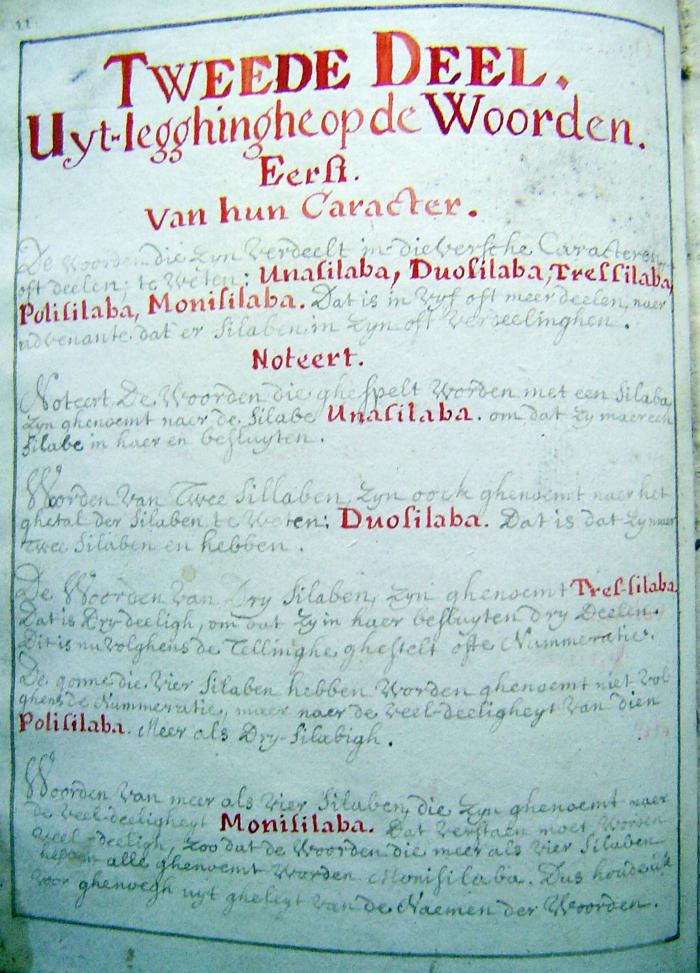 TWEEDE DEEL.
Uyt-legghinghe op de Woorden.
Eerst.
Van hun Caracter.
De Woorden die Zyn Verdeelt in dieversche Caracteren
oft deelen: te Weten: Unasilaba, Duosilaba, Tressilaba,
Polisilaba, Monisilaba. Dat is in Vyf oft meer deelen, naer
advenante dat er Silaben in Zyn oft Verdeelinghen.
Noteert.
Noteert. De Woorden die ghespelt Worden met een Silaba
Zyn ghenoemt naer de Silabe Unasilaba. om dat Zy maer een
Silabe in haer en besluyten.
Woorden Van Twee Sillaben, Zyn oock ghenoemt naer het
ghetal der Silaben te Weten: Duosilaba. Dat is dat Zy maer
Twee Silaben en hebben.
De Woorden Van Dry Silaben, Zyn ghenoemt Tres-silaba.
Dat is Dry-deeligh, om dat Zy in haer besluyten dry Deelen.
Dit is nu Volghens de Tellinghe ghestelt ofte Nummeratie.
De gonne die Vier Silaben hebben Worden ghenoemt niet Vol
ghens de Nummeratie, maer naer de Veel-deeligheyt Van dien
Polisilaba. Meer als Dry-Silabigh.
Woorden Van meer als Vier Silaben, die Zyn ghenoemt naer
de Veel-deeligheyt Monisilaba. Dat Verstaen moet Worden
Veel-deeligh, Zoo dat de Woorden die meer als Vier Silaben
hebben alle ghenoemt Worden Monisilaba. Dus houde ick
Voor ghenoegh uyt gheleyt Van de Naemen der Woorden.